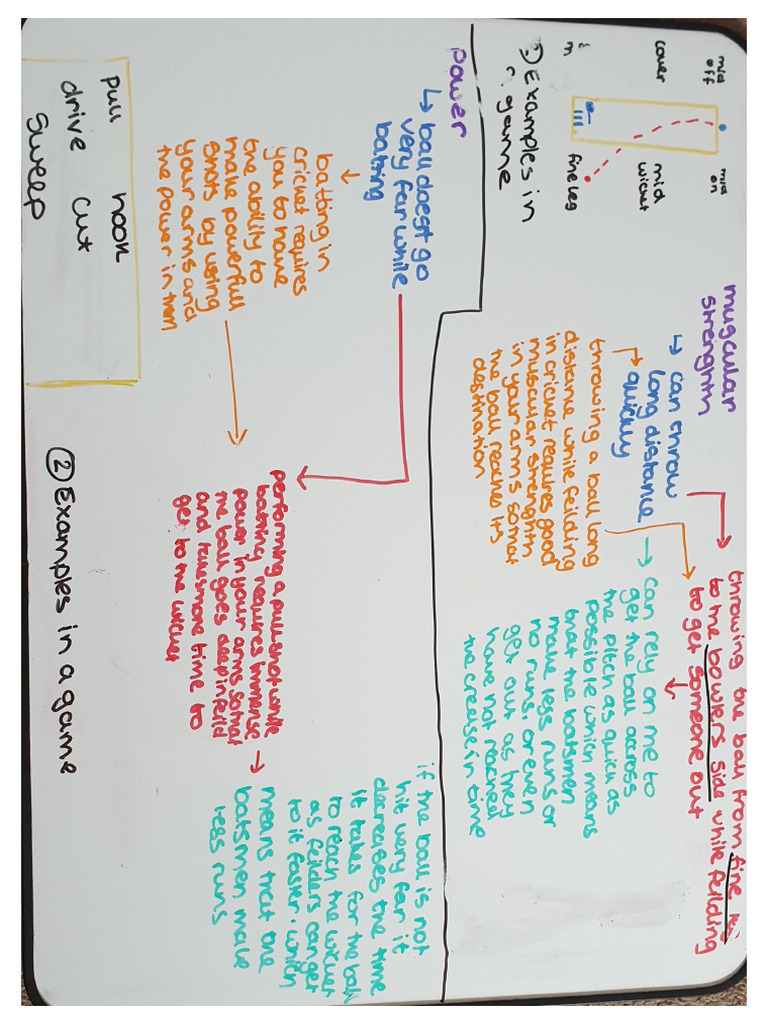 mid
off
mid
on
cover
mid
wicket
fine leg
1) Examples in
game
muscular
strenghth
↳ can throw
long distance
quickly
throwing a ball long
distance while feilding
in cricket requires good
muscular strenghth
in your arms so that
the ball reaches its
destination
throwing the ball from fine leg
to the bowlers side while feilding
to get someone out
can rely on me to
get the ball across
the pitch as quick as
possible which means
that the batsmen
make less runs or
no runs, or even
get out as they
have not reached
the crease in time
power
↳ ball doesnt go
very far while
batting
batting in
cricket requires
you to have
the ability to
make powerfull
shots by using
your arms and
the power in them
performing a pull shot while
batting requires immense
power in your arms so that
the ball goes deep in feild
and takes more time to
get to the wicket
if the ball is not
hit very far it
decreases the time
it takes for the ball
to reach the wicket
as feilders can get
to it faster. which
means that the
batsmen make
less runs
pull hook
drive cut
sweep
② Examples in a game